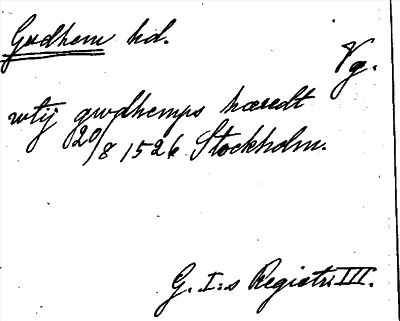 Gudhem hd.
Vg.
wtij gwdhemps hæredt
20/8 1526 Stockholm.
G. I:s Registr. III.